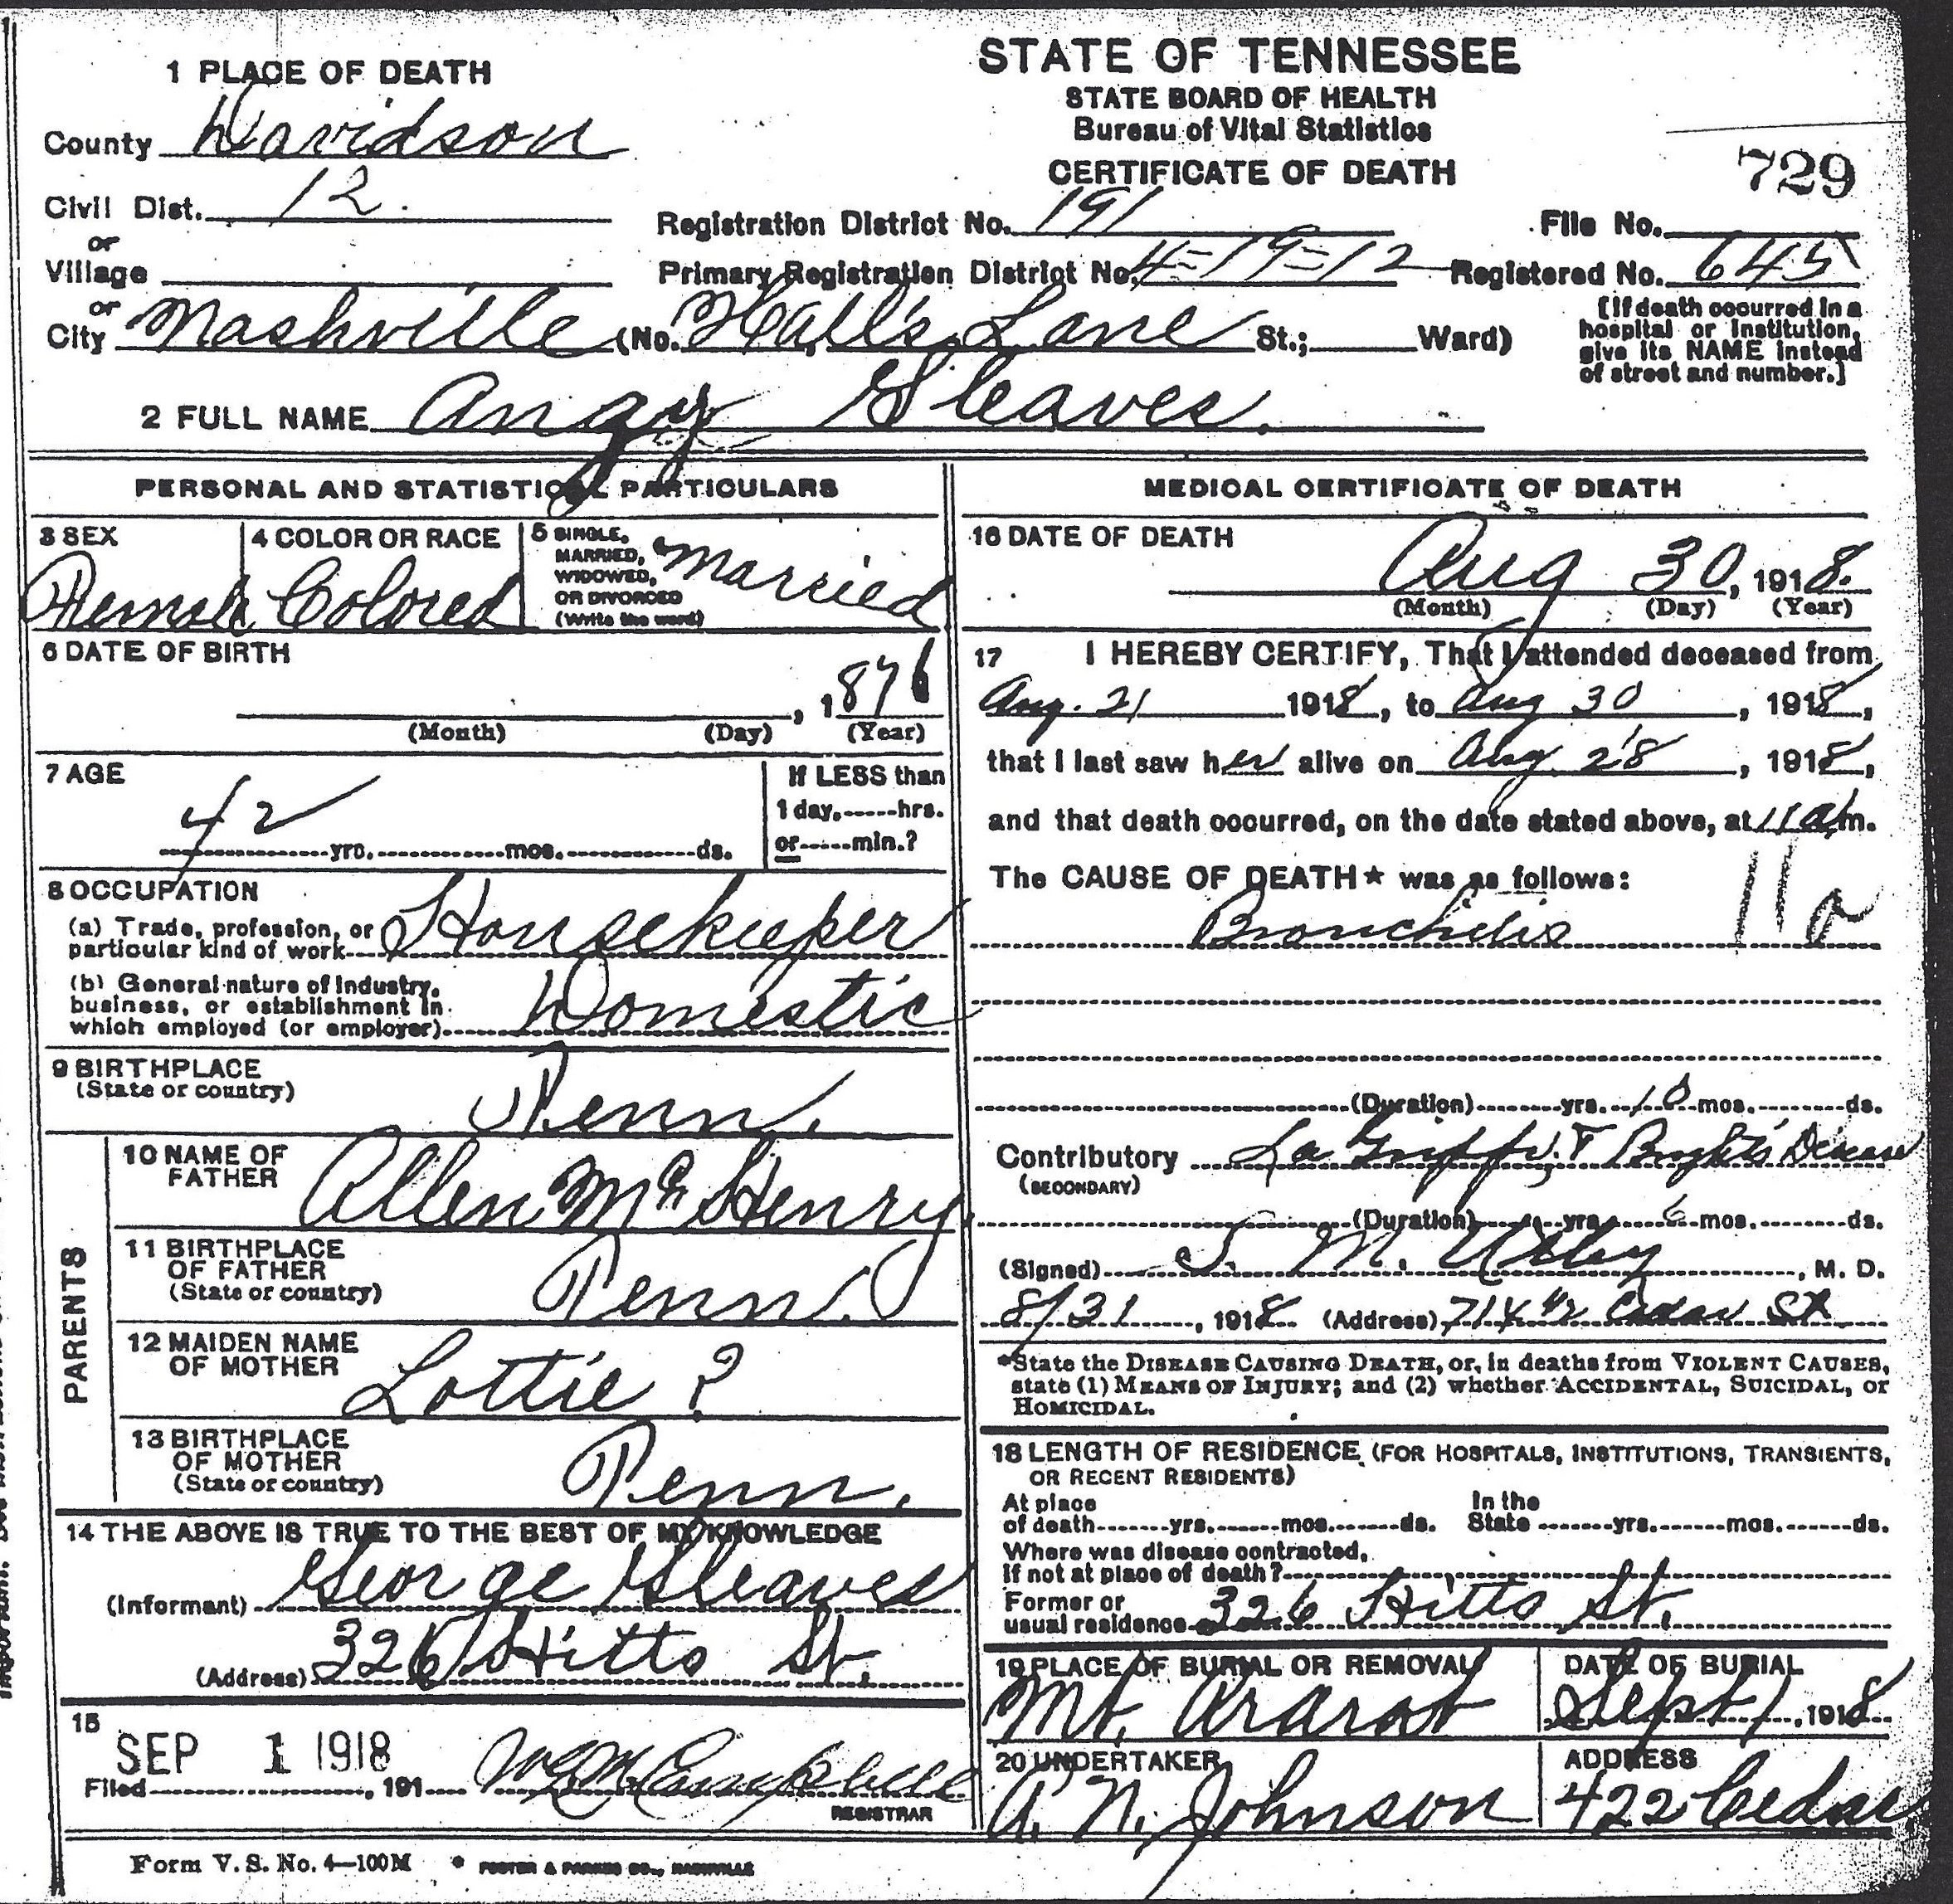 STATE OF TENNESSEE
STATE BOARD OF HEALTH
Bureau of Vital Statistics
CERTIFICATE OF DEATH
729
1 PLACE OF DEATH
County Davidson
Civil Dist. 12.
or
Village
or
City Nashville (No. Hall's Lane St.; Ward)
Registration District No. 191
File No.
Primary Registration District No. 4=19=12
Registered No. 645
[If death occurred in a
hospital or institution,
give its NAME instead
of street and number.]
2 FULL NAME Angy Gleaves.
PERSONAL AND STATISTICAL PARTICULARS
3 SEX
Female
4 COLOR OR RACE
Colored
5 SINGLE,
MARRIED,
WIDOWED,
OR DIVORCED
(Write the word)
Married
6 DATE OF BIRTH
, 1876
(Month) (Day) (Year)
7 AGE
42
yrs. mos. ds.
If LESS than
1 day, hrs.
or min.?
8 OCCUPATION
(a) Trade, profession, or
particular kind of work Housekeeper
(b) General nature of industry,
business, or establishment in
which employed (or employer) Domestic
9 BIRTHPLACE
(State or country)
Penn.
PARENTS
10 NAME OF
FATHER
Allen McHenry
11 BIRTHPLACE
OF FATHER
(State or country)
Penn.
12 MAIDEN NAME
OF MOTHER
Lottie ?
13 BIRTHPLACE
OF MOTHER
(State or country)
Penn.
14 THE ABOVE IS TRUE TO THE BEST OF MY KNOWLEDGE
(Informant) George Gleaves
(Address) 326 Hitts St.
15
SEP 1 1918
Filed , 191
Campbell
REGISTRAR
MEDICAL CERTIFICATE OF DEATH
16 DATE OF DEATH
Aug 30, 1918.
(Month) (Day) (Year)
17 I HEREBY CERTIFY, That I attended deceased from
Aug. 21 1918, to Aug 30, 1918,
that I last saw her alive on Aug. 28, 1918,
and that death occurred, on the date stated above, at 11 a m.
The CAUSE OF DEATH* was as follows:
Bronchitis
11a
(Duration) yrs. 10 mos. ds.
Contributory La Grippe & Bright's Disease
(SECONDARY)
(Duration) yrs. 6 mos. ds.
(Signed) S. M. Utley, M. D.
8/31, 1918 (Address) 714 1/2 Cedar St
*State the DISEASE CAUSING DEATH, or, in deaths from VIOLENT CAUSES,
state (1) MEANS OF INJURY; and (2) whether ACCIDENTAL, SUICIDAL, or
HOMICIDAL.
18 LENGTH OF RESIDENCE (FOR HOSPITALS, INSTITUTIONS, TRANSIENTS,
OR RECENT RESIDENTS)
At place
of death yrs. mos. ds.
In the
State yrs. mos. ds.
Where was disease contracted,
If not at place of death?
Former or
usual residence 326 Hitts St.
19 PLACE OF BURIAL OR REMOVAL
Mt. Ararat
DATE OF BURIAL
Sept 1, 1918
20 UNDERTAKER
A. N. Johnson
ADDRESS
422 Cedar
Form V. S. No. 4—100M * FOSTER & PARKES CO., NASHVILLE